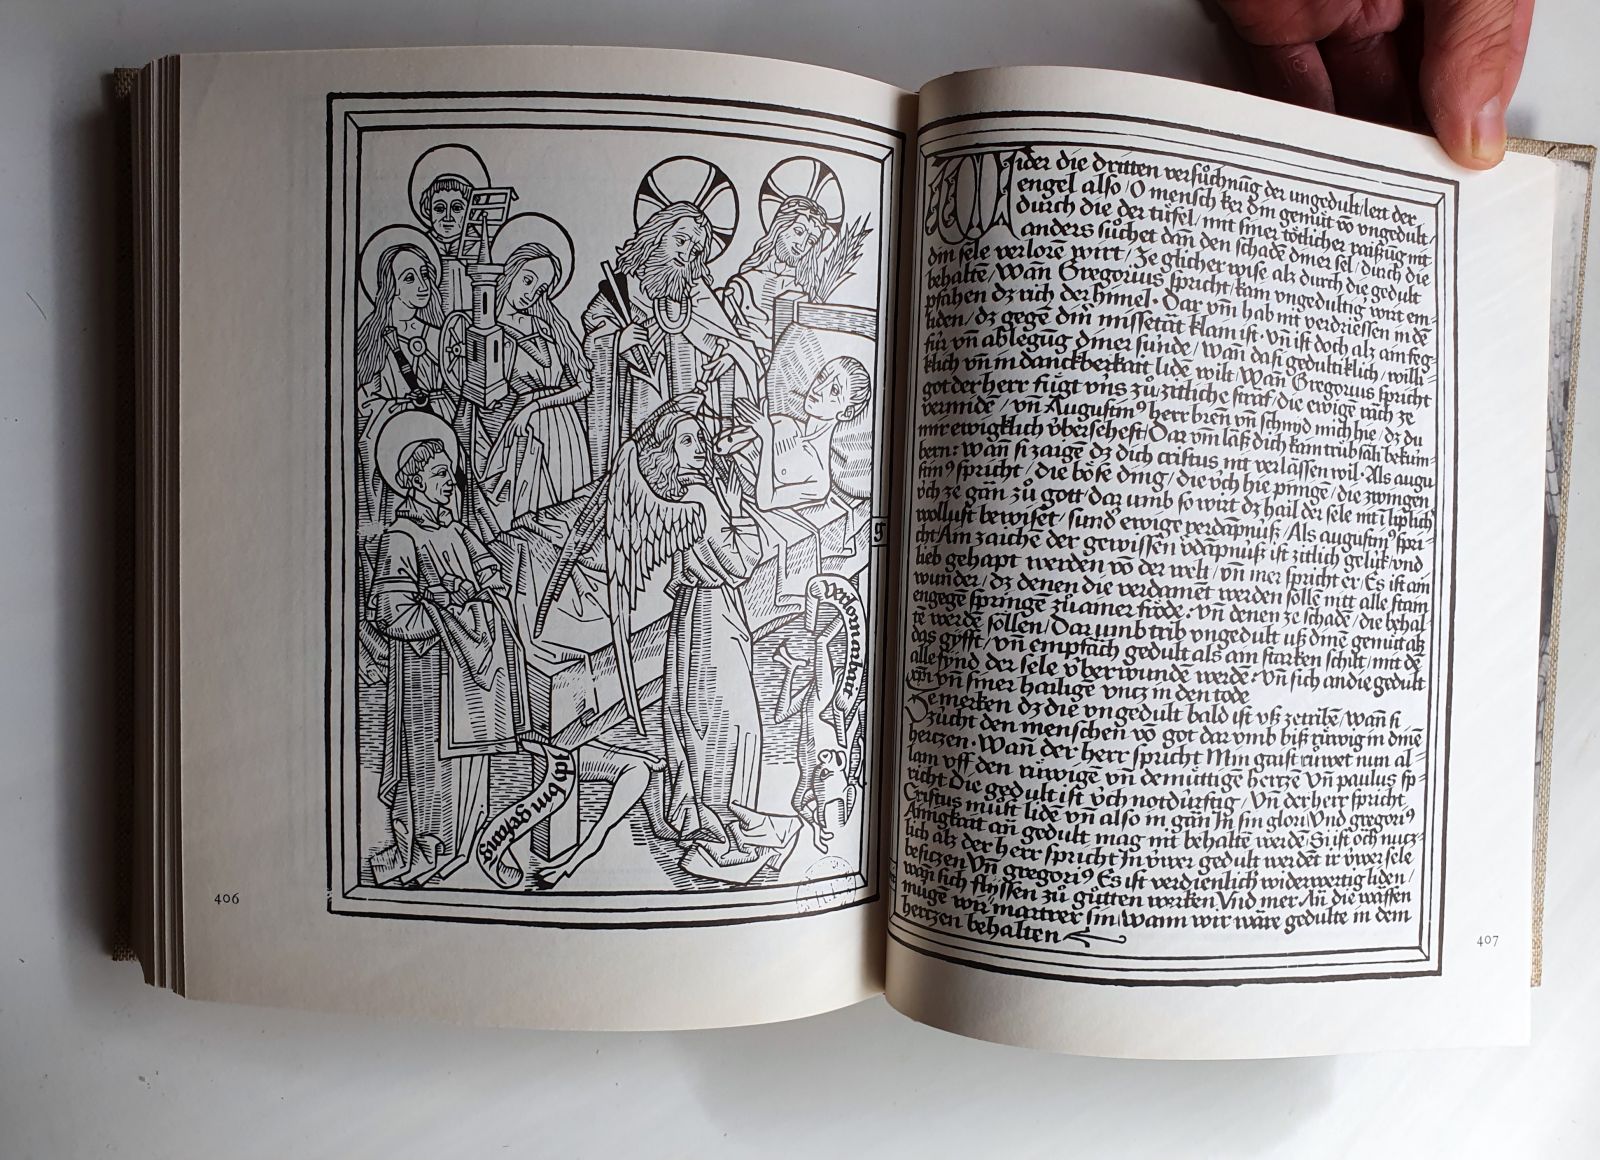 verlorn arbait
Ich bin gefang
g
406
Wider die dritten versůchnūg der ungedult / lert der
engel also / O mensch ker din gemůt vō vngedult /
durch die der tüfel / mit siner tötlicher raißūg nit
anders sůchet dañ den schadē diner sel / durch die
din sele verlorē wirt / Ze glicher wise alz durch die gedult
behaltē / Wañ Gregorius spricht / kain vngedultig wirt em-
pfahen dz rich der himel · Dar vm̄ hab nit verdriessen in dē
liden / dz gegē dinē missetätt klain ist · vn̄ ist doch alz am feg-
für vn̄ ablegūg diner sünde / wañ das gedultiklich / willi-
klich vn̄ in danckberkait lidē wilt Wañ Gregorius spricht
got der herr fügt vns zů zitliche straf / die ewige rach ze
vermidē / vn̄ Augustin⁹ herr bren̄ vn̄ schnyd mich hie / dz du
mir ewigklich übersehest / Dar vm laß dich kain trübsali bekům-
bern: Wañ si zaige dz dich cristus nit verlassen wil · Als augu
stin⁹ spricht / die böse ding / die vch hie pinigē / die zwingen
vch ze gān zů gott / dar umb so wirt dz hail der sele nit ī liplich
wollust bewiset / sund⁹ ewige verdāpnüß / Als augustin⁹ spri-
cht Am zaiche der gewissen vdāpniß ist zitlich gelük / vnd
lieb gehapt werden vō der welt / vn̄ mer spricht er / Es ist am
wunder / dz denen die verdamet werden sölle nit alle stain
engegē springē zů ainer fröde · vn̄ denen ze schadē / die behal-
tē werdē söllen / Dar umb trib vngedult uß dinē gemüt alz
das gyfft / vn̄ empfach gedult als ain starken schilt / mit dē
alle fynd der sele überwundē werdē · vn̄ sich an die gedult
xp̄i vn̄ siner hailigē vncz in den tode
Ze merken dz die vngedult bald ist vß zetribē / wañ si
zücht den menschen vō got dar vmb biß rüwig in dinē
hertzen · Wañ der herr spricht Min gaist rüwet nun al-
lain vff den rüwige vn̄ demüttige hertzē Vn̄ paulus sp-
richt Die gedult ist üch notdürftig / Vn̄ der herr spricht
Cristus můst lidē vn̄ also in gān In sin glori / Vnd gregori⁹
Ainigkait an̄ gedult mag nit behaltē werdē Si ist och nucz-
lich alz der herr spricht In üwer gedult werdēt ir üwer sele
besitzen Vn̄ gregori⁹ Es ist verdienlich widerwertig liden /
wañ sich flyssen zů gůtten werken Vnd mer An̄ die waffen
mügē wir martrer sin / Wann wir ware gedulte in dem
hertzen behalten
407